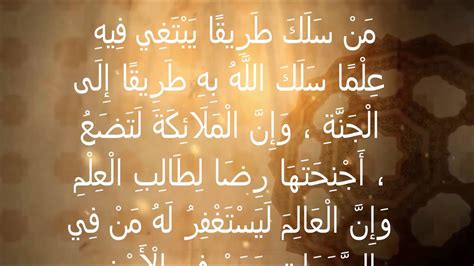 مَنْ سَلَكَ طَرِيقًا يَبْتَغِي فِيهِ
عِلْمًا سَلَكَ اللَّهُ بِهِ طَرِيقًا إِلَى
الْجَنَّةِ ، وَإِنَّ الْمَلَائِكَةَ لَتَضَعُ
، أَجْنِحَتَهَا رِضًا لِطَالِبِ الْعِلْمِ
وَإِنَّ الْعَالِمَ لَيَسْتَغْفِرُ لَهُ مَنْ فِي